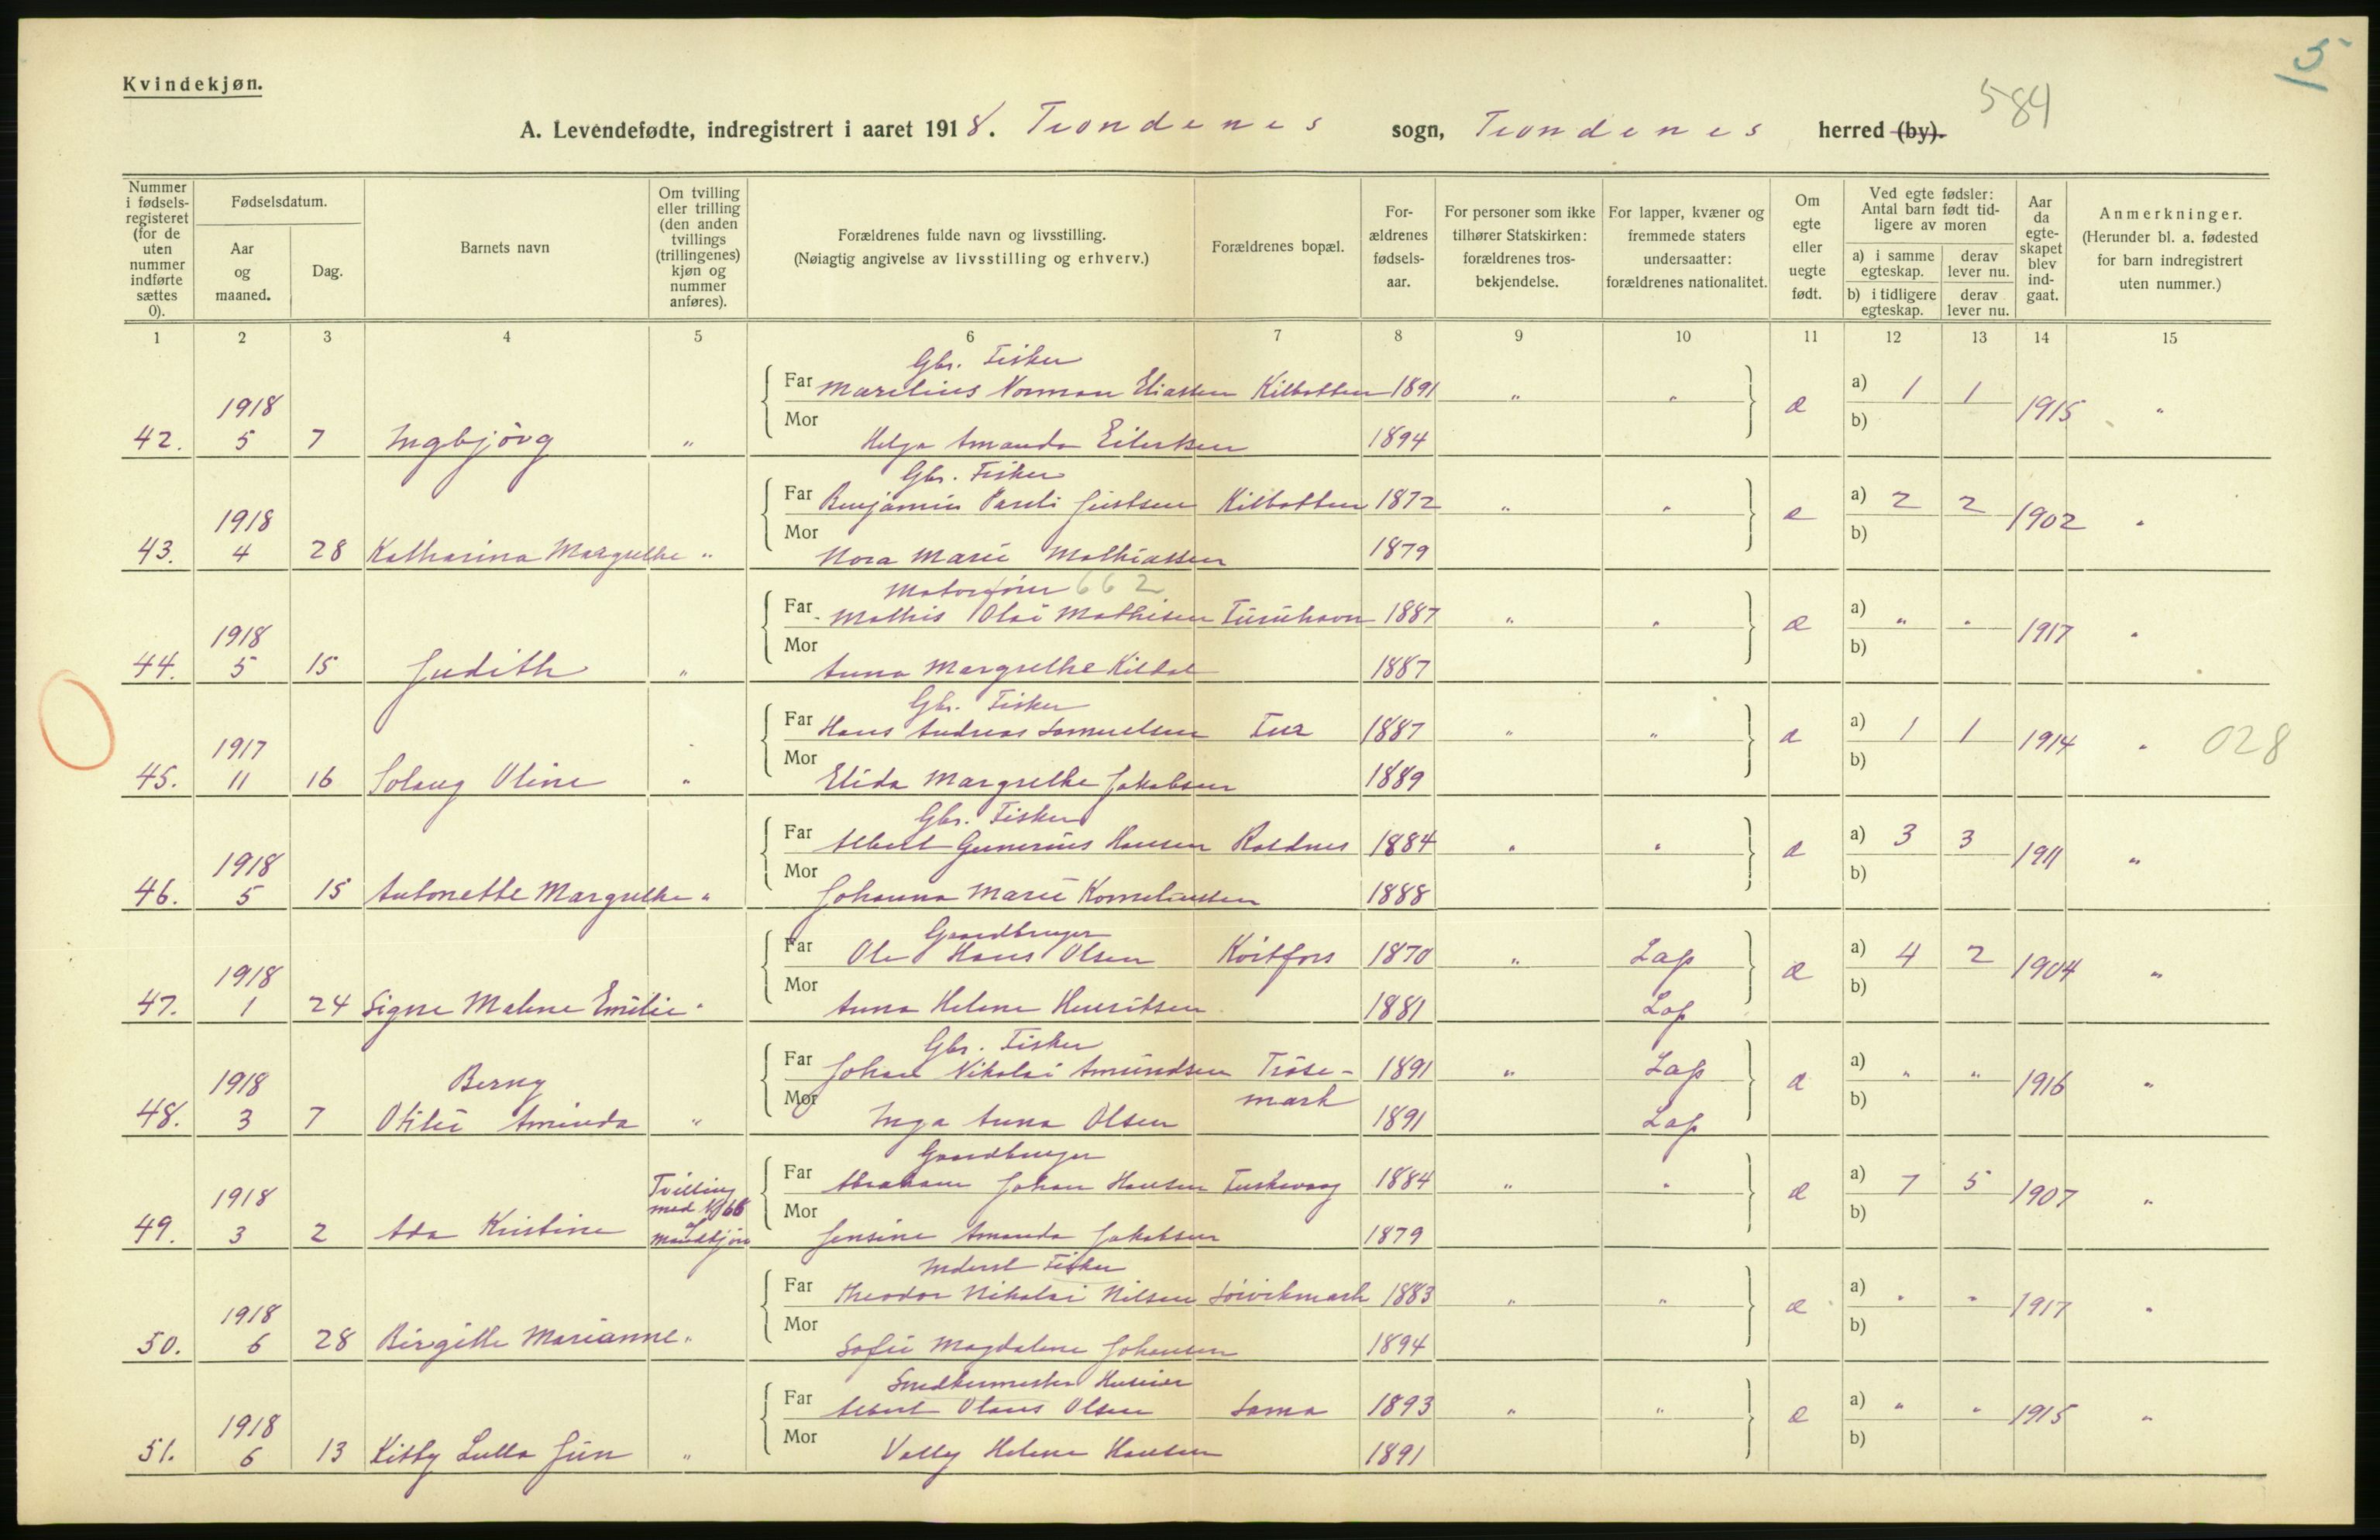 5
Kvindekjøn.
584
A. Levendefødte, indregistrert i aaret 1918. Trondenes sogn, Trondenes herred (by).
Nummer i fødsels-registeret (for de uten nummer indførte sættes 0).
Fødselsdatum.
Aar og maaned.
Dag.
Barnets navn
Om tvilling eller trilling (den anden tvillings (trillingenes) kjøn og nummer anføres).
Forældrenes fulde navn og livsstilling. (Nøiagtig angivelse av livsstilling og erhverv.)
Forældrenes bopæl.
For-ældrenes fødsels-aar.
For personer som ikke tilhører Statskirken: forældrenes tros-bekjendelse.
For lapper, kvæner og fremmede staters undersaatter: forældrenes nationalitet.
Om egte eller uegte født.
Ved egte fødsler: Antal barn født tid-ligere av moren
a) i samme egteskap. derav lever nu.
b) i tidligere egteskap. derav lever nu.
Aar da egte-skapet blev ind-gaat.
Anmerkninger. (Herunder bl. a. fødested for barn indregistrert uten nummer.)
1 2 3 4 5 6 7 8 9 10 11 12 13 14 15
Gbr. Fisker
Far Marelius Norman Eliassen Kilbotten 1891 " " a) 1 1
1918 Mor æ b) 1915 "
42. 5 7 Ingbjörg " Helga Amanda Eilertsen 1894
Gbr. Fisker
Far Benjamin Pareli Justsen Kilbotten 1872 " " a) 2 2
1918 Mor æ b) 1902 "
43. 4 28 Katharina Margrethe " Nora Marie Mathiassen 1879
Motorfører 662
Far Mathis Olai Mathisen 1887 " " a) " "
1918 Mor æ b) 1917 "
44. 5 15 Judith " Anna Margrethe Kildal 1887
Gbr. Fisker
Far Hans Andreas Samuelsen 1887 " " a) 1 1
1917 Mor æ b) 1914 " 028
45. 11 16 Solaug Oline " Elida Margrethe Jakobsen 1889
Gbr. Fisker
Far Albert Gunerius Hansen 1884 " " a) 3 3
1918 Mor æ b) 1911 "
46. 5 15 Antonette Margrethe " Johanna Marie Korneliussen 1888
Gaardbruger
Far Ole Hans Olsen 1870 " Lap a) 4 2
1918 Mor æ b) 1904 "
47. 1 24 Signe Malene Emilie " Anna Helene Henriksen 1881 Lap
Gbr. Fisker
Far Johan Nikolai Amundsen Tröse- 1891 " Lap a) " "
1918 Berny Mor mark æ b) 1916 "
48. 3 7 Otilie Aminda " Inga Anna Olsen 1891 Lap
Gaardbruger
Far Abraham Johan Hansen Fuskevaag 1884 " " a) 7 5
1918 Tvilling med No 66 Mor æ b) 1907 "
49. 3 2 Ada Kristine af mandkjøn Jensine Amanda Jakobsen 1879
Inderst Fisker
Far Theodor Nikolai Nilsen Sörvikmark 1883 " " a) " "
1918 Mor æ b) 1917 "
50. 6 28 Birgitte Marianne " Sofie Magdalene Johansen 1894
Snedkermester Huseier
Far Albert Olaus Olsen Sama 1893 " " a) " "
1918 Mor æ b) 1915 "
51. 6 13 Kitty Lulla Jün " Vally Helene Hansen 1891